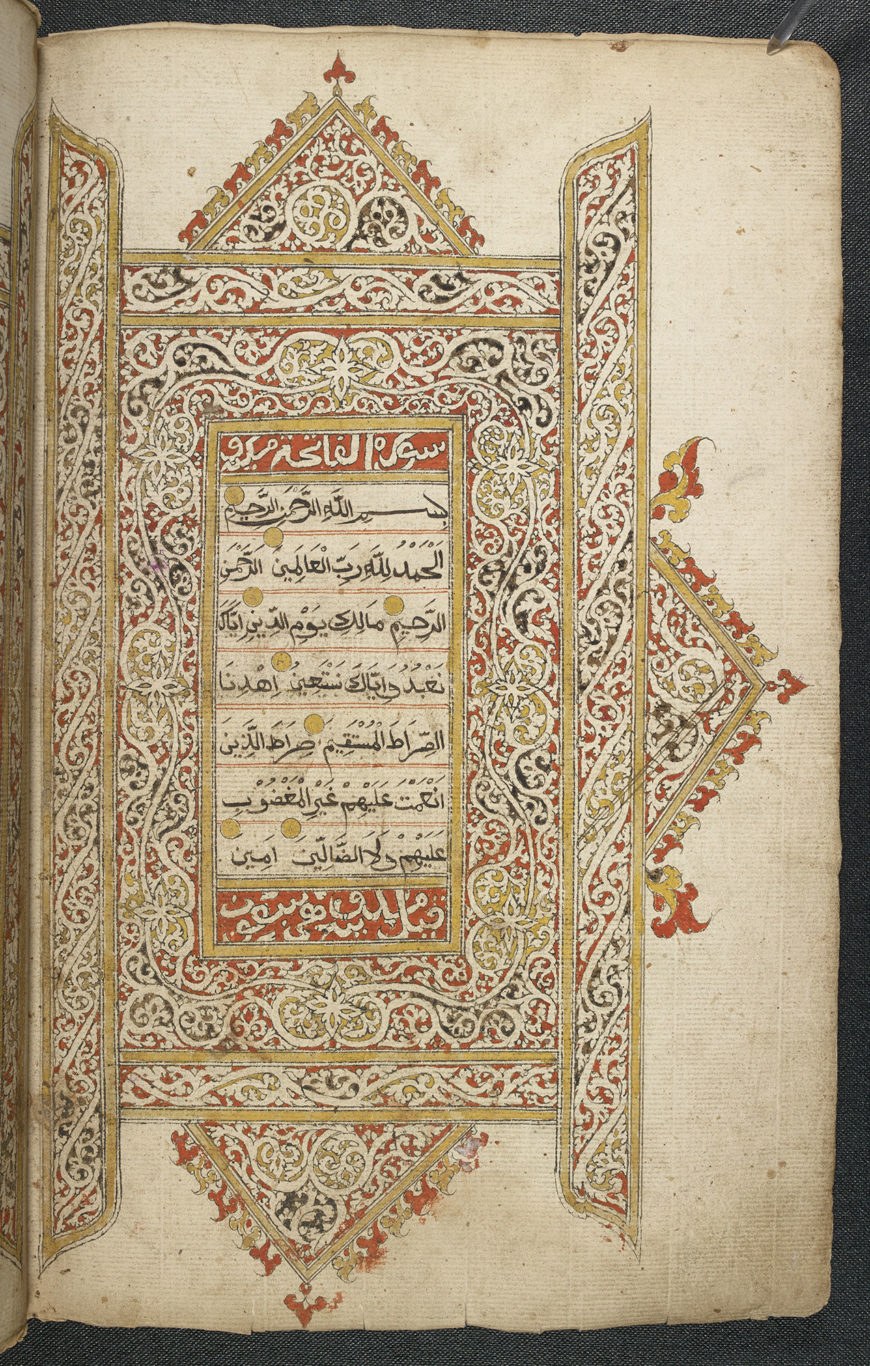 سورة الفاتحة مكية و
بِسْمِ اللَّهِ الرَّحْمَنِ الرَّحِيمِ
اَلْحَمْدُ لِلَّهِ رَبِّ الْعَالَمِينَ الرَّحْمَنِ
الرَّحِيمِ مَالِكِ يَوْمِ الدِّينِ اِيَّاكَ
نَعْبُدُ وَاِيَّاكَ نَسْتَعِينُ اِهْدِنَا
الصِّرَاطَ الْمُسْتَقِيمَ صِرَاطَ الَّذِينَ
اَنْعَمْتَ عَلَيْهِمْ غَيْرِ الْمَغْضُوبِ
عَلَيْهِمْ وَلَا الضَّالِّينَ اَمِينَ